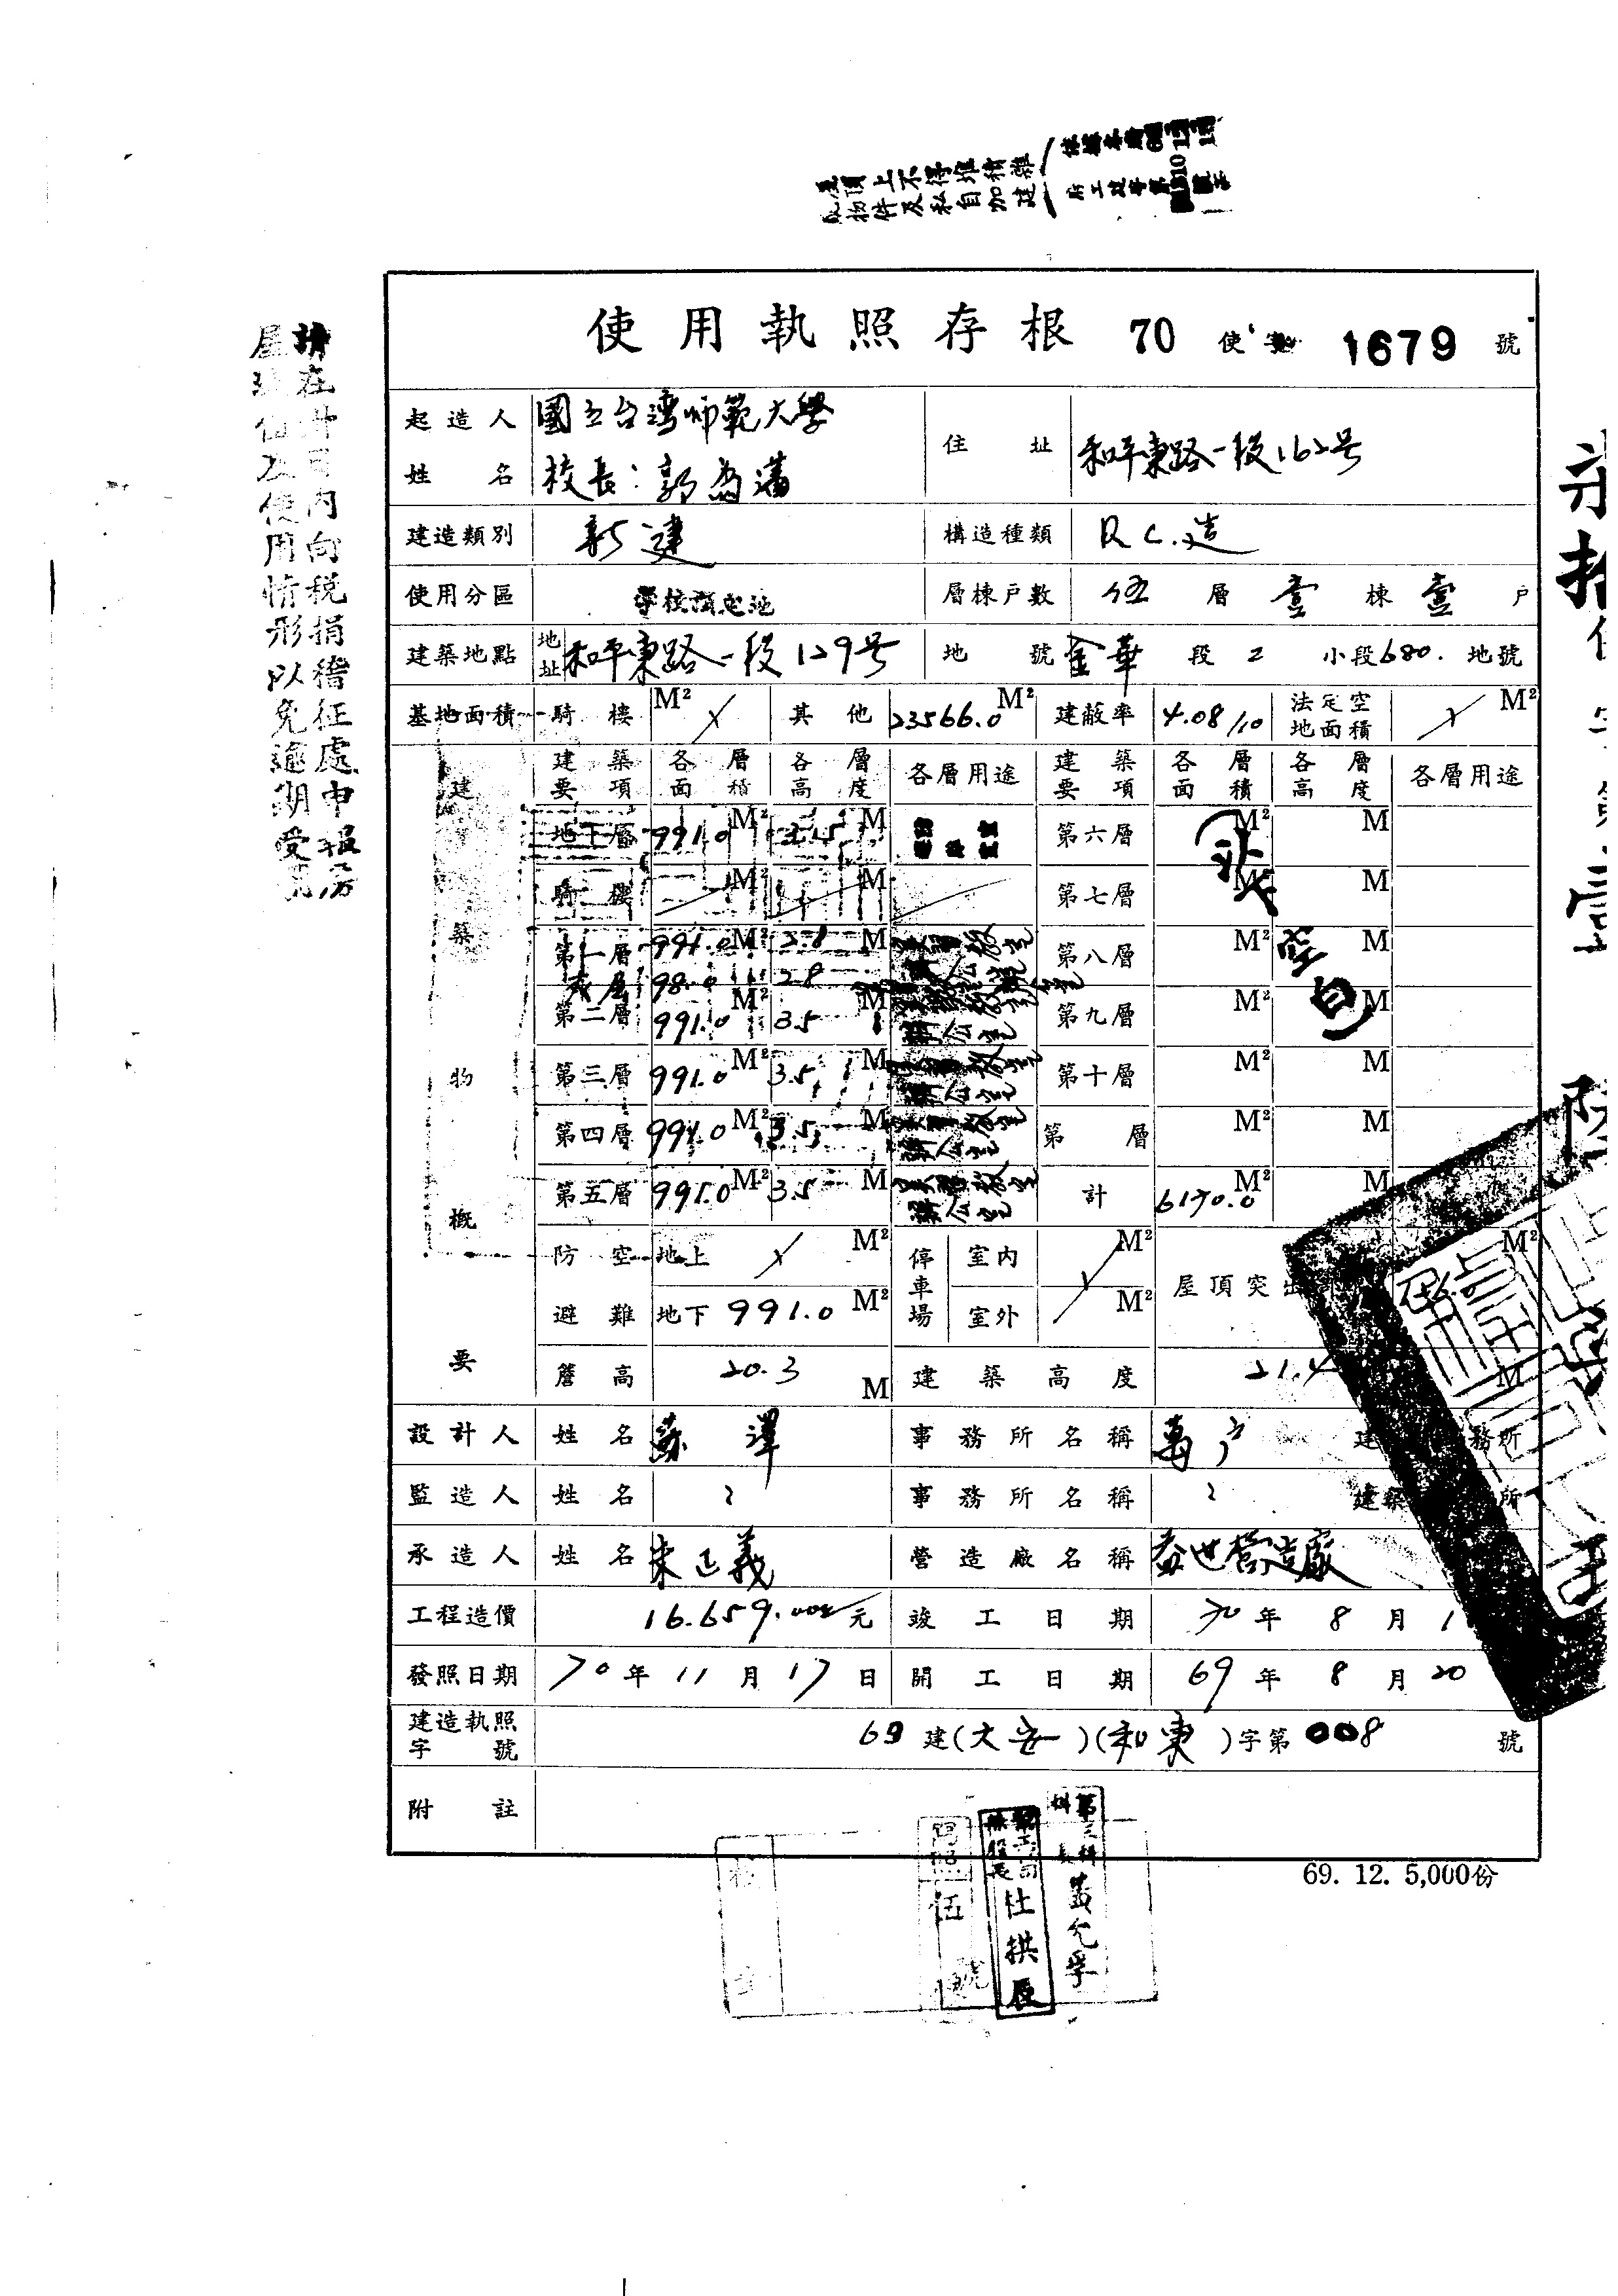 屋頂上不得堆積雜
物件及私自加建
使用執照存根 70 使字 1679 號
起造人姓名 國立台灣師範大學
校長：郭為藩
住址 和平東路一段162号
建造類別 新建 構造種類 R.C.造
使用分區 學校預定地 層棟戶數 伍層壹棟壹戶
建築地點 地址 和平東路一段129号 地號 金華段2小段680.地號
基地面積 騎樓 M² 其他 23566.0 M² 建蔽率 4.08/10 法定空地面積 M²
建築物概要
建築要項 各層面積 各層高度 各層用途 建築要項 各層面積 各層高度 各層用途
地下層 991.0 M² M 第六層 M² M
騎樓 M² M 第七層 M² M
第一層 991.0 M² 2.8 M 第八層 M² M
夾層 98.0 2.8
第二層 991.0 M² 3.5 M 第九層 M² M
第三層 991.0 M² 3.5 M 第十層 M² M
第四層 991.0 M² 3.5 M 第 層 M² M
第五層 991.0 M² 3.5 M 計 6170.0 M² M
空白
防空避難 地上 M² 停車場 室內 M² 屋頂突出 M²
地下 991.0 M² 室外 M²
簷高 20.3 M 建築高度 21.4 M
設計人 姓名 蘇澤 事務所名稱 建 務所
監造人 姓名 〃 事務所名稱 〃 建築 所
承造人 姓名 朱正義 營造廠名稱 益世營造廠
工程造價 16.659.000 元 竣工日期 70年8月1
發照日期 70年11月17日 開工日期 69年8月20
建造執照字號 69建(大安)(和東)字第008號
附註
69. 12. 5,000份
請在 月內向稅捐稽征處申報房
屋 使用情形以免逾期受罰
第三科科長 黃允孚
杜拱辰
伍號